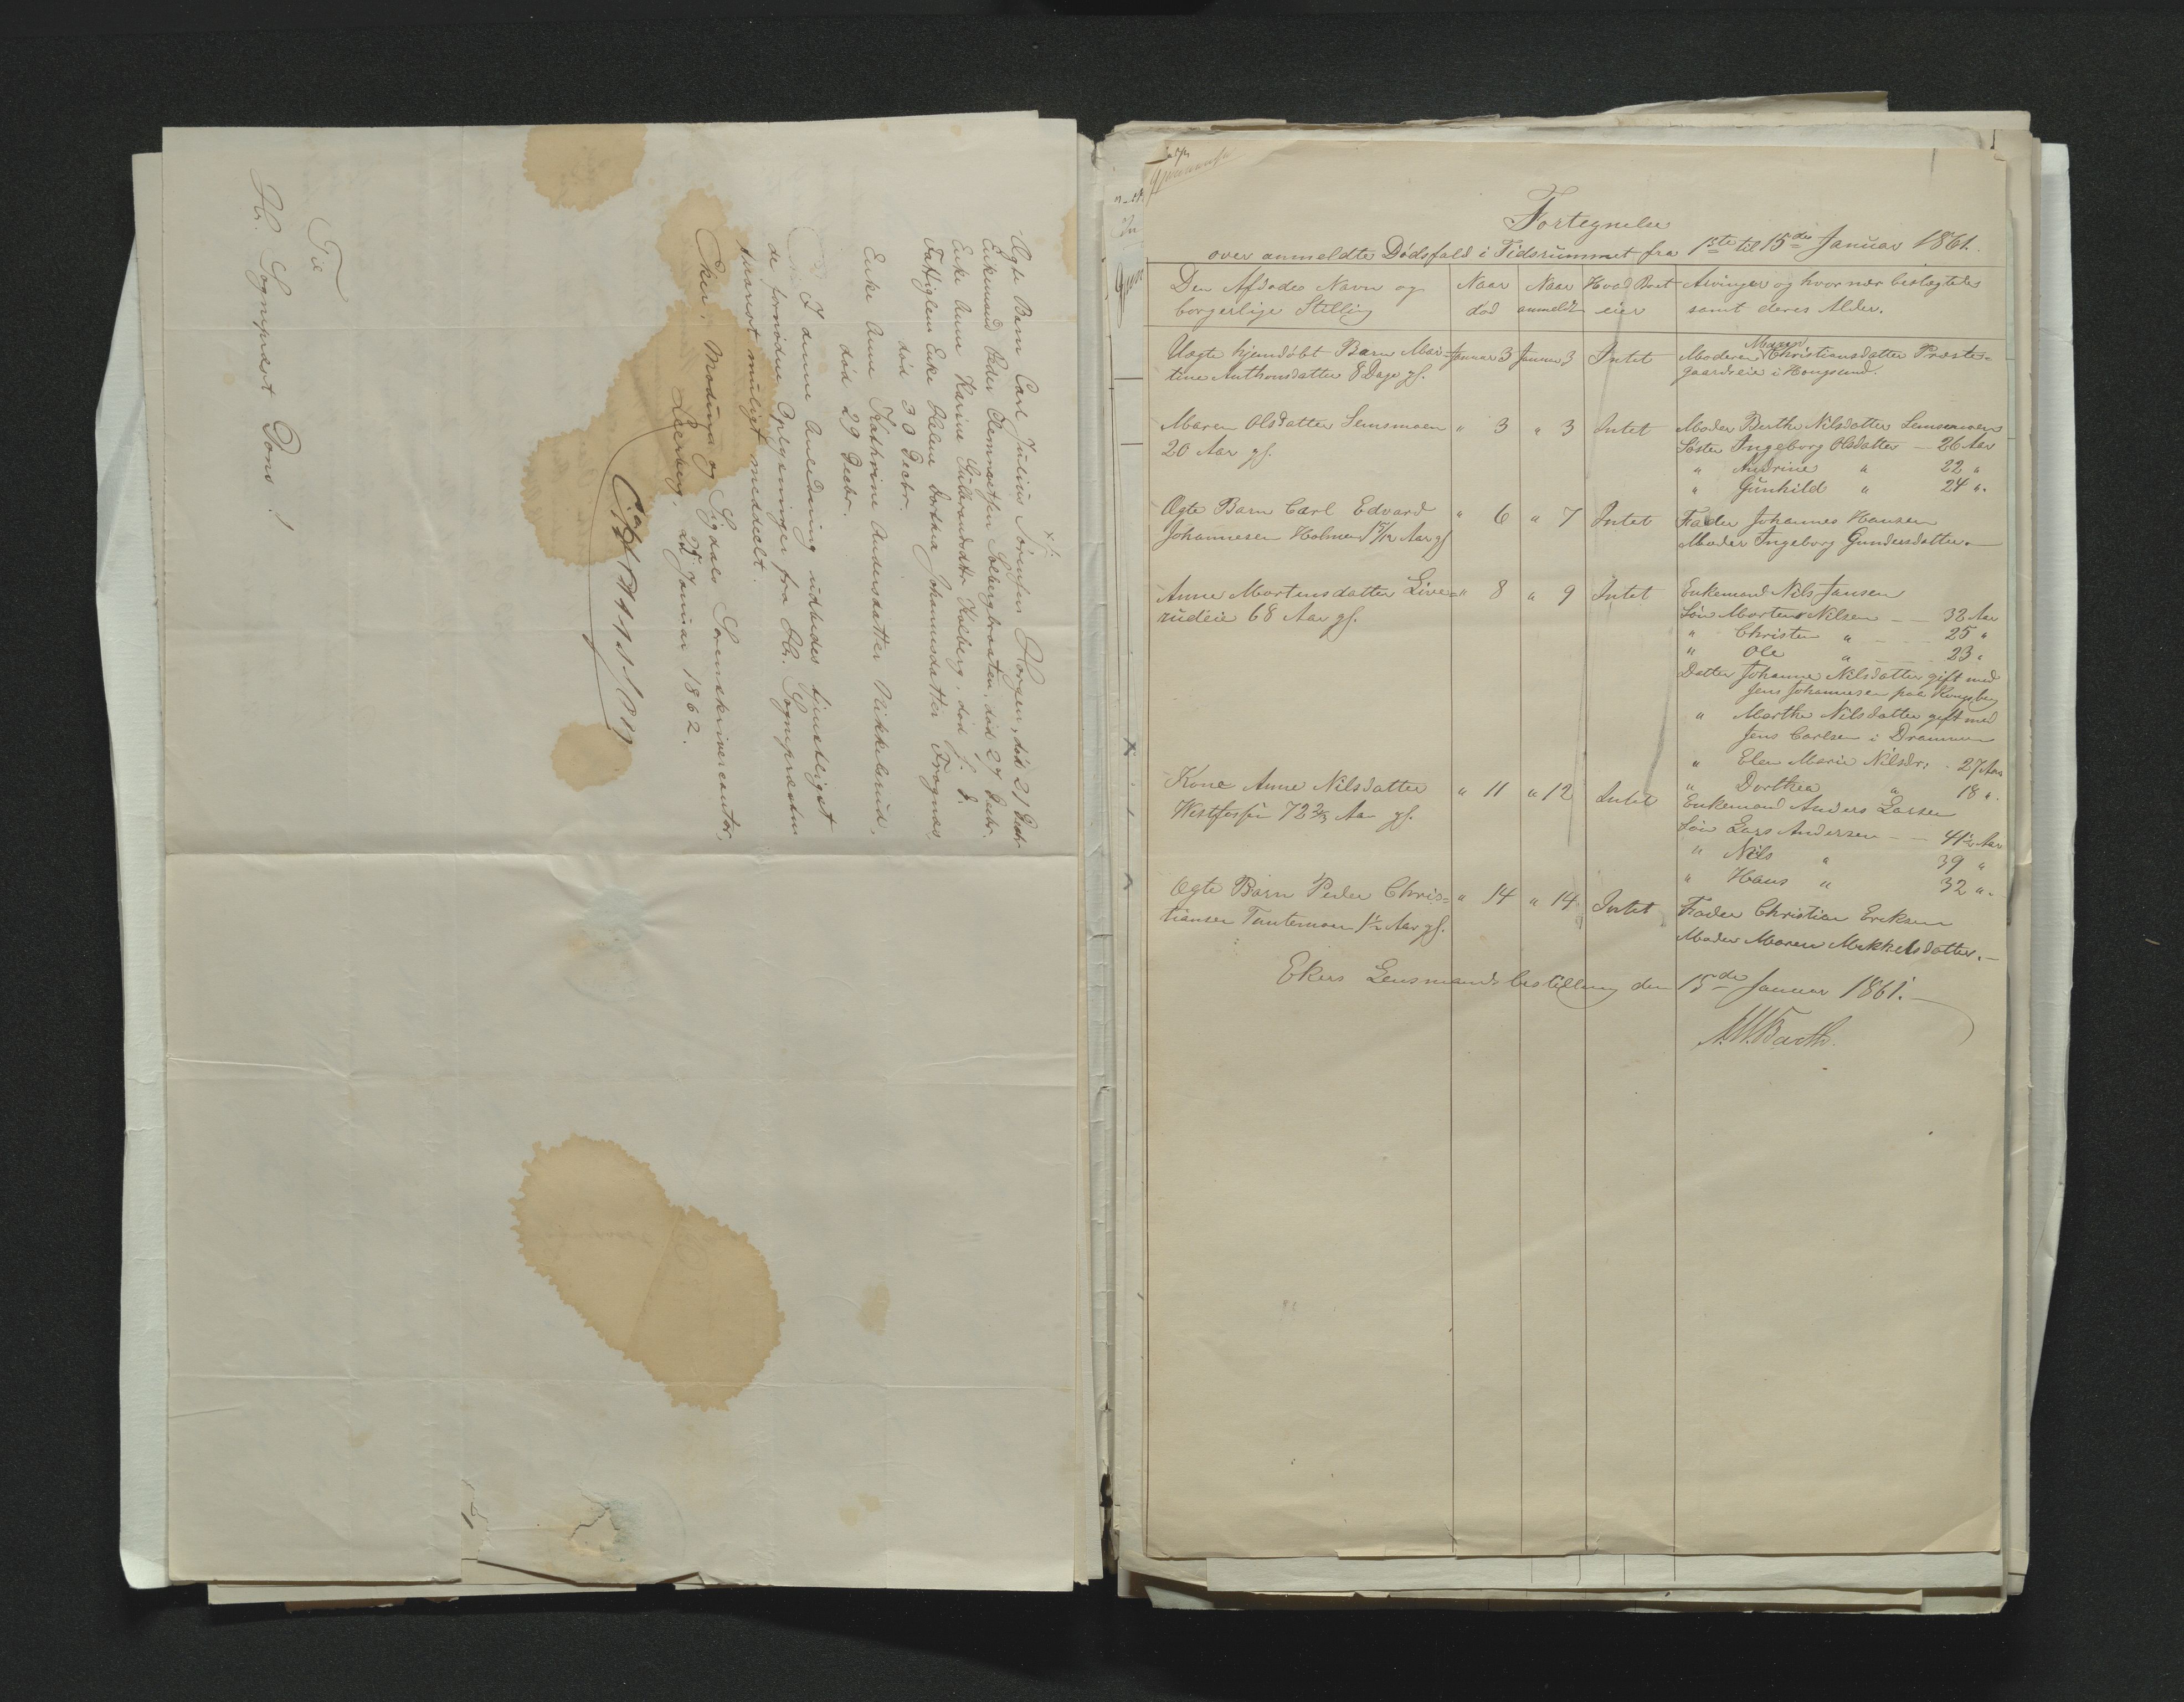 Ægte Barn Carl Julius Sørensen Horgen, død 21 Decbr
Enkemand Peder Clemmetsen Solbergbraaten, død 27 Decbr.
Enke Anne Karine Gulbrandsdtr Kolberg, død s. D.
Fattiglem Enke Helene Dorthea Johannesdatter Frognæs,
død 30 Decbr.
Enke Anne Kathrine Andersdatter Mikkelsrud,
død 29 Decbr.
I denne Anledning udbedes tjenstligst
de fornødne Oplysninger fra Hr. Sognepræsten
snarest muligt meddeelt.
Eker, Modums og Sigdals Sorenskrivercontor,
Leerberg, 25 Januar 1862.
Til
Hr. Sognepræst Dons!
Gjennemseet
Fortegnelse
over anmeldte Dødsfald i Tidsrummet fra 1ste til 15de Januar 1861.
Den Afdødes Navn og Naar Naar Hvad Boet Arvinger og hvor nær beslægtede
borgerlige Stilling død anmeldt eier samt deres Alder.
Maren
Uægte hjemdøbt Barn Mar= Januar 3 Januar 3 Intet Moderen Christiansdatter Præste=
tine Anthonsdatter 8 Dage gl. gaardseie i Hougsund.
Maren Olsdatter Semsmoen " 3 " 3 Intet Moder Berthe Nilsdatter Semsmoen
20 Aar gl. Søster Ingeborg Olsdatter — 26 Aar
" Andrine " 22 "
" Gunhild " 24 ".
Ægte Barn Carl Edvard " 6 " 7 Intet Fader Johannes Hansen
Johannesen Holmen 1 5/12 Aar gl Moder Ingeborg Gundersdatter.—
Anne Mortensdatter Live= " 8 " 9 Intet Enkemand Nils Jansen
rudeie 68 Aar gl. Søn Morten Nilsen — — 32 Aar
" Christen " — 25 "
" Ole " — 23 "
Datter Johanne Nilsdatter gift med
Jens Johannesen paa Kongsberg
" Marthe Nilsdatter gift med
Jens Carlsen i Drammen
" Elen Marie Nilsdr: . 27 Aar
" Dorthea " 18 ".
Kone Anne Nilsdatter " 11 " 12 Intet Enkemand Anders Larsen
Westfossen 72 2/3 Aar gl. Søn Lars Andersen — — 41½ Aar
" Nils " 39 "
" Hans " 32 ".
Ægte Barn Peder Chris= " 14 " 14 Intet Fader Christian Eriksen
tiansen Tantemoen 1½ Aar gl. Moder Maren Mikkelsdatter.—
Ekers Lensmandsbestilling den 15de Januar 1861.—
Barth.